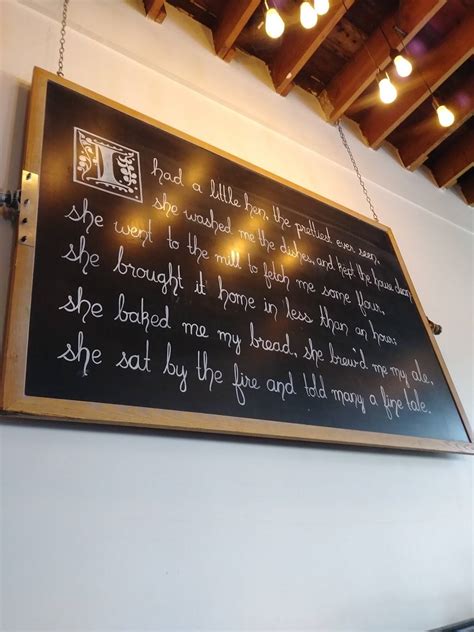 I had a little hen, the prettied ever seen,
she washed me the dishes, and kept the house clean
she went to the mill to fetch me some flour,
she brought it home in less than an hour,
she baked me my bread, she brew'd me my ale,
she sat by the fire and told many a fine tale.